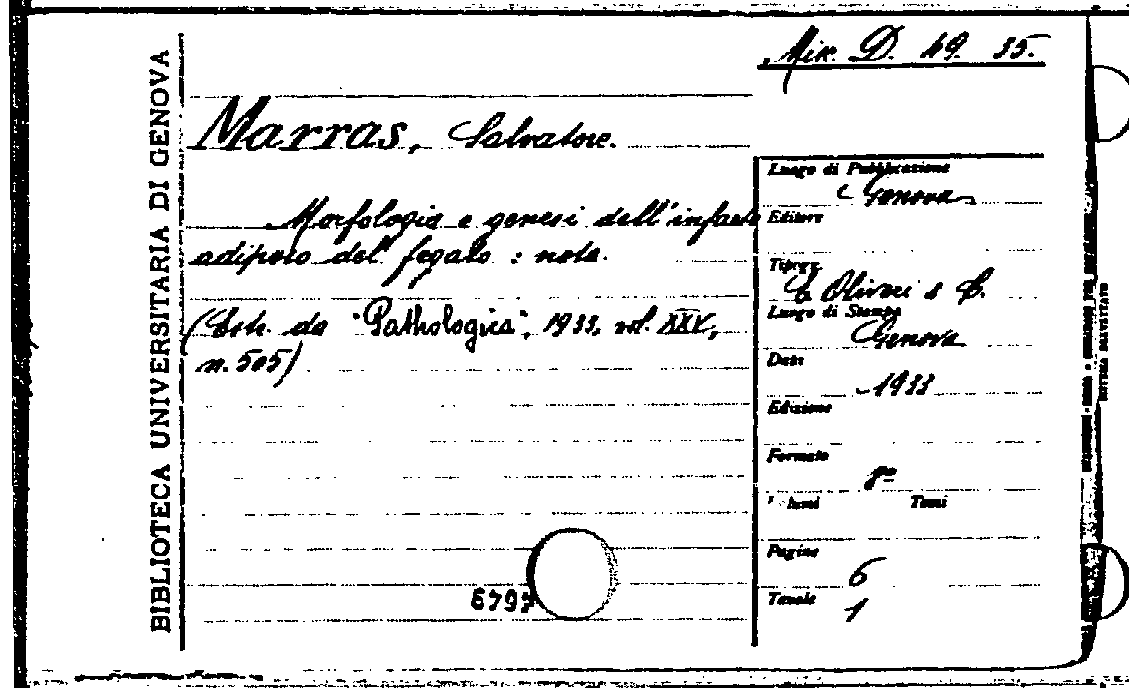 BIBLIOTECA UNIVERSITARIA DI GENOVA
Misc. D. 49. 35.
Marras, Salvatore.
Morfologia e genesi dell'infarto
adiposo del fegato : nota.
(Estr. da "Pathologica", 1933, vol. XXV,
n. 505)
6797
Luogo di Pubblicazione
Genova
Editore
Tipogr.
Olivieri & C.
Luogo di Stampa
Genova
Data
1933
Edizione
Formato
8°
Volumi Tomi
Pagine
6
Tavole
1